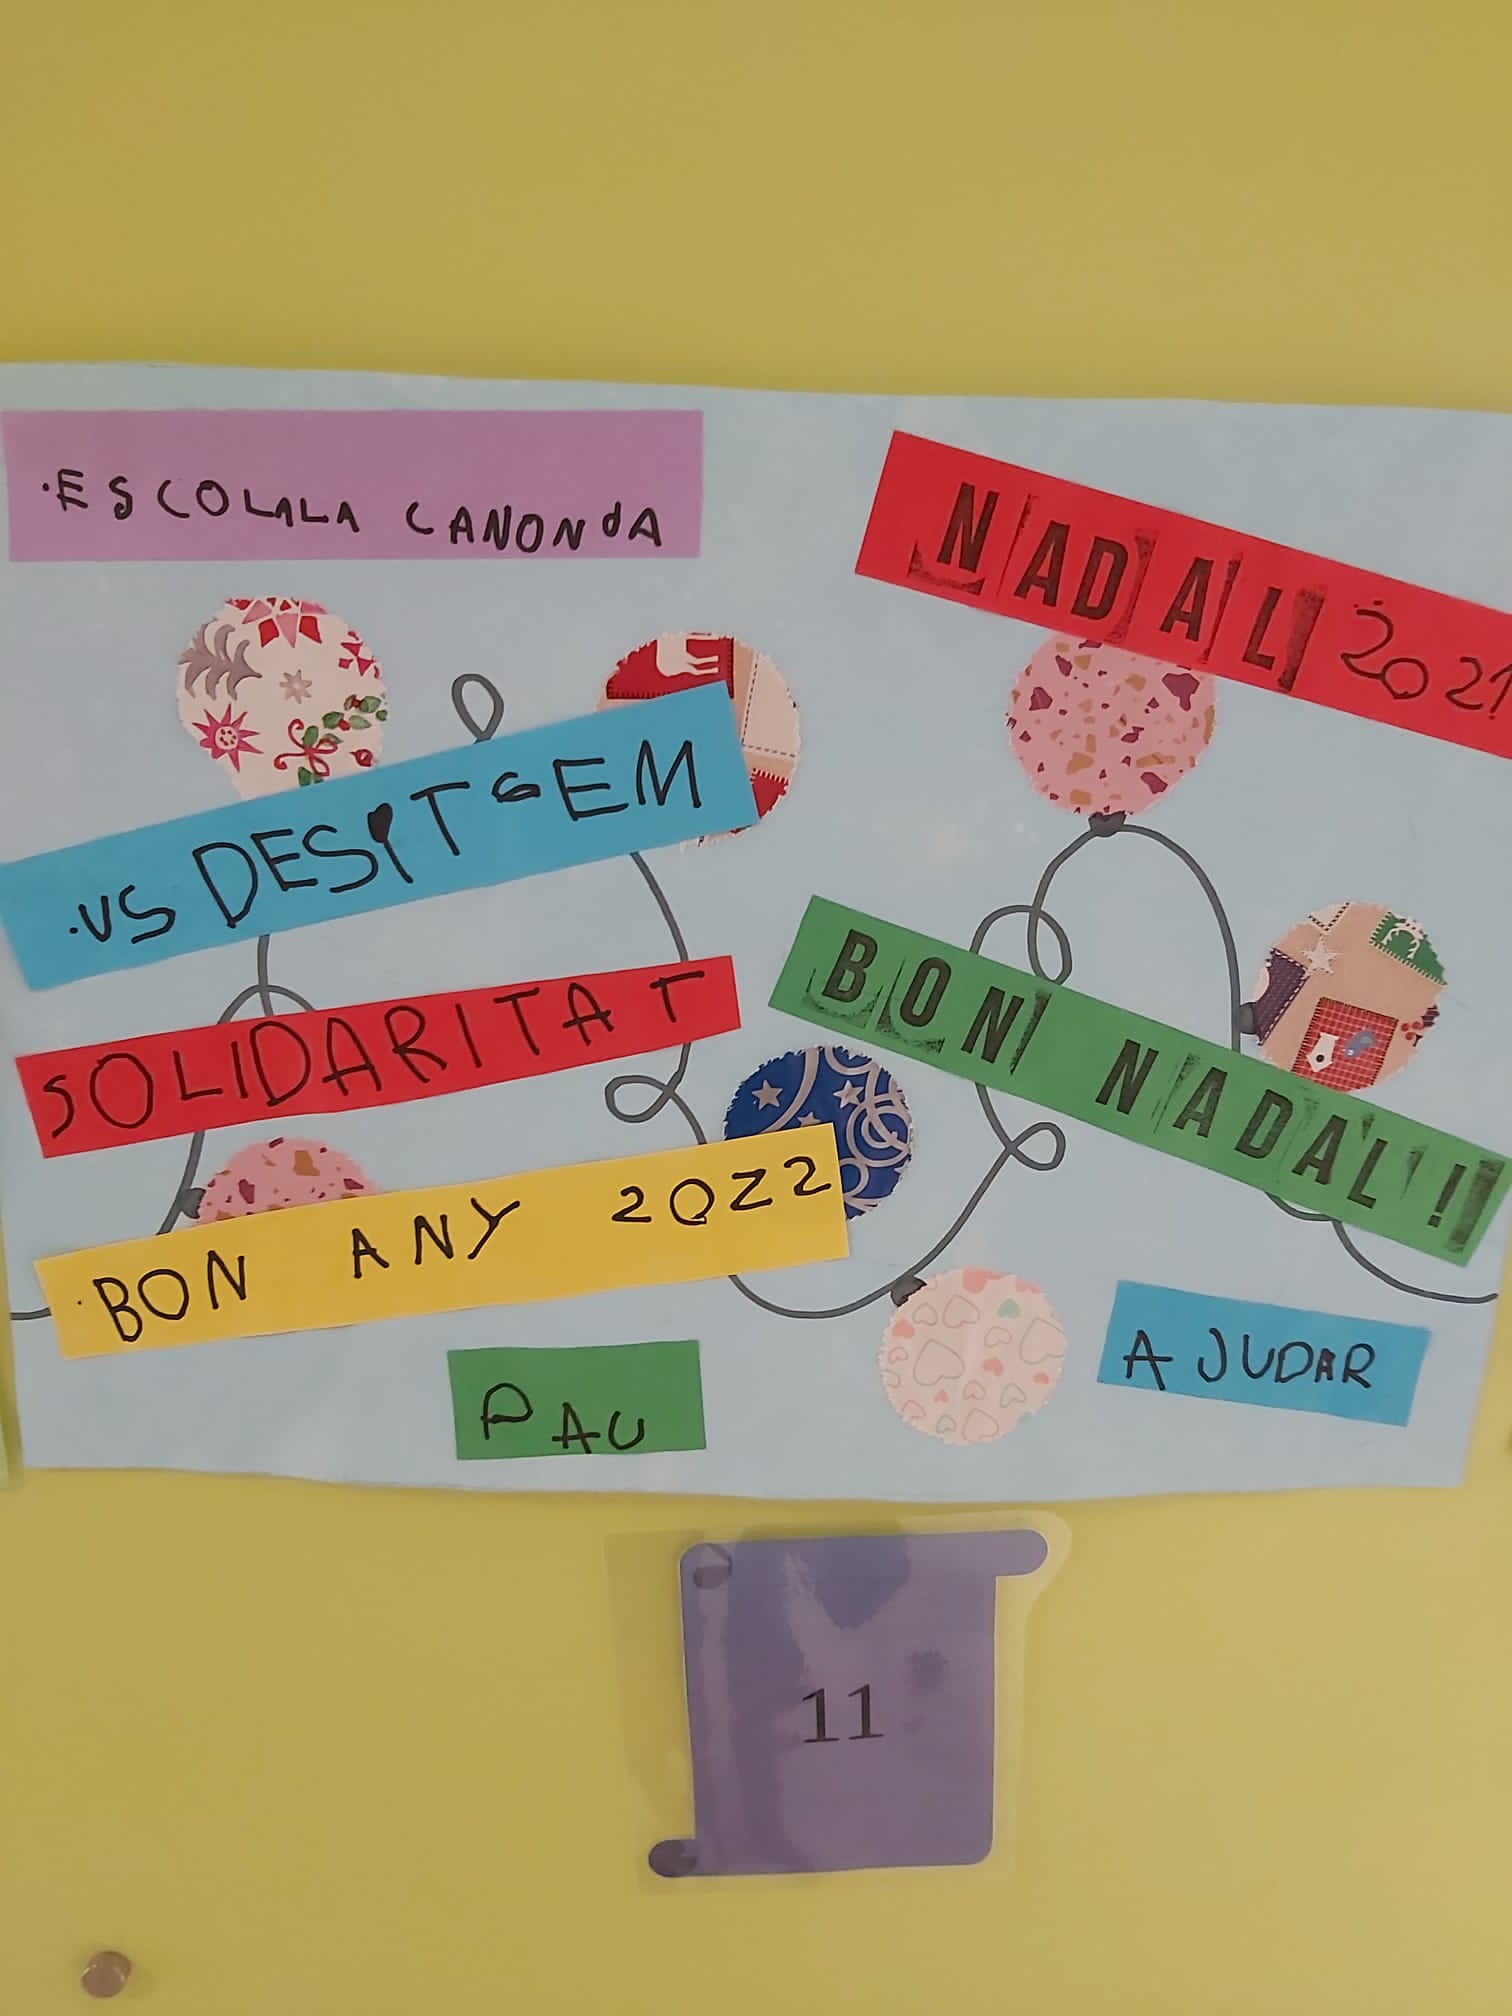 ·ESCOLALA CANONdA
NADAL 2021
·VS DESITGEM
SOLIDARITAT
BON NADAL!
·BON ANY 2022
AJUDAR
PAU
11